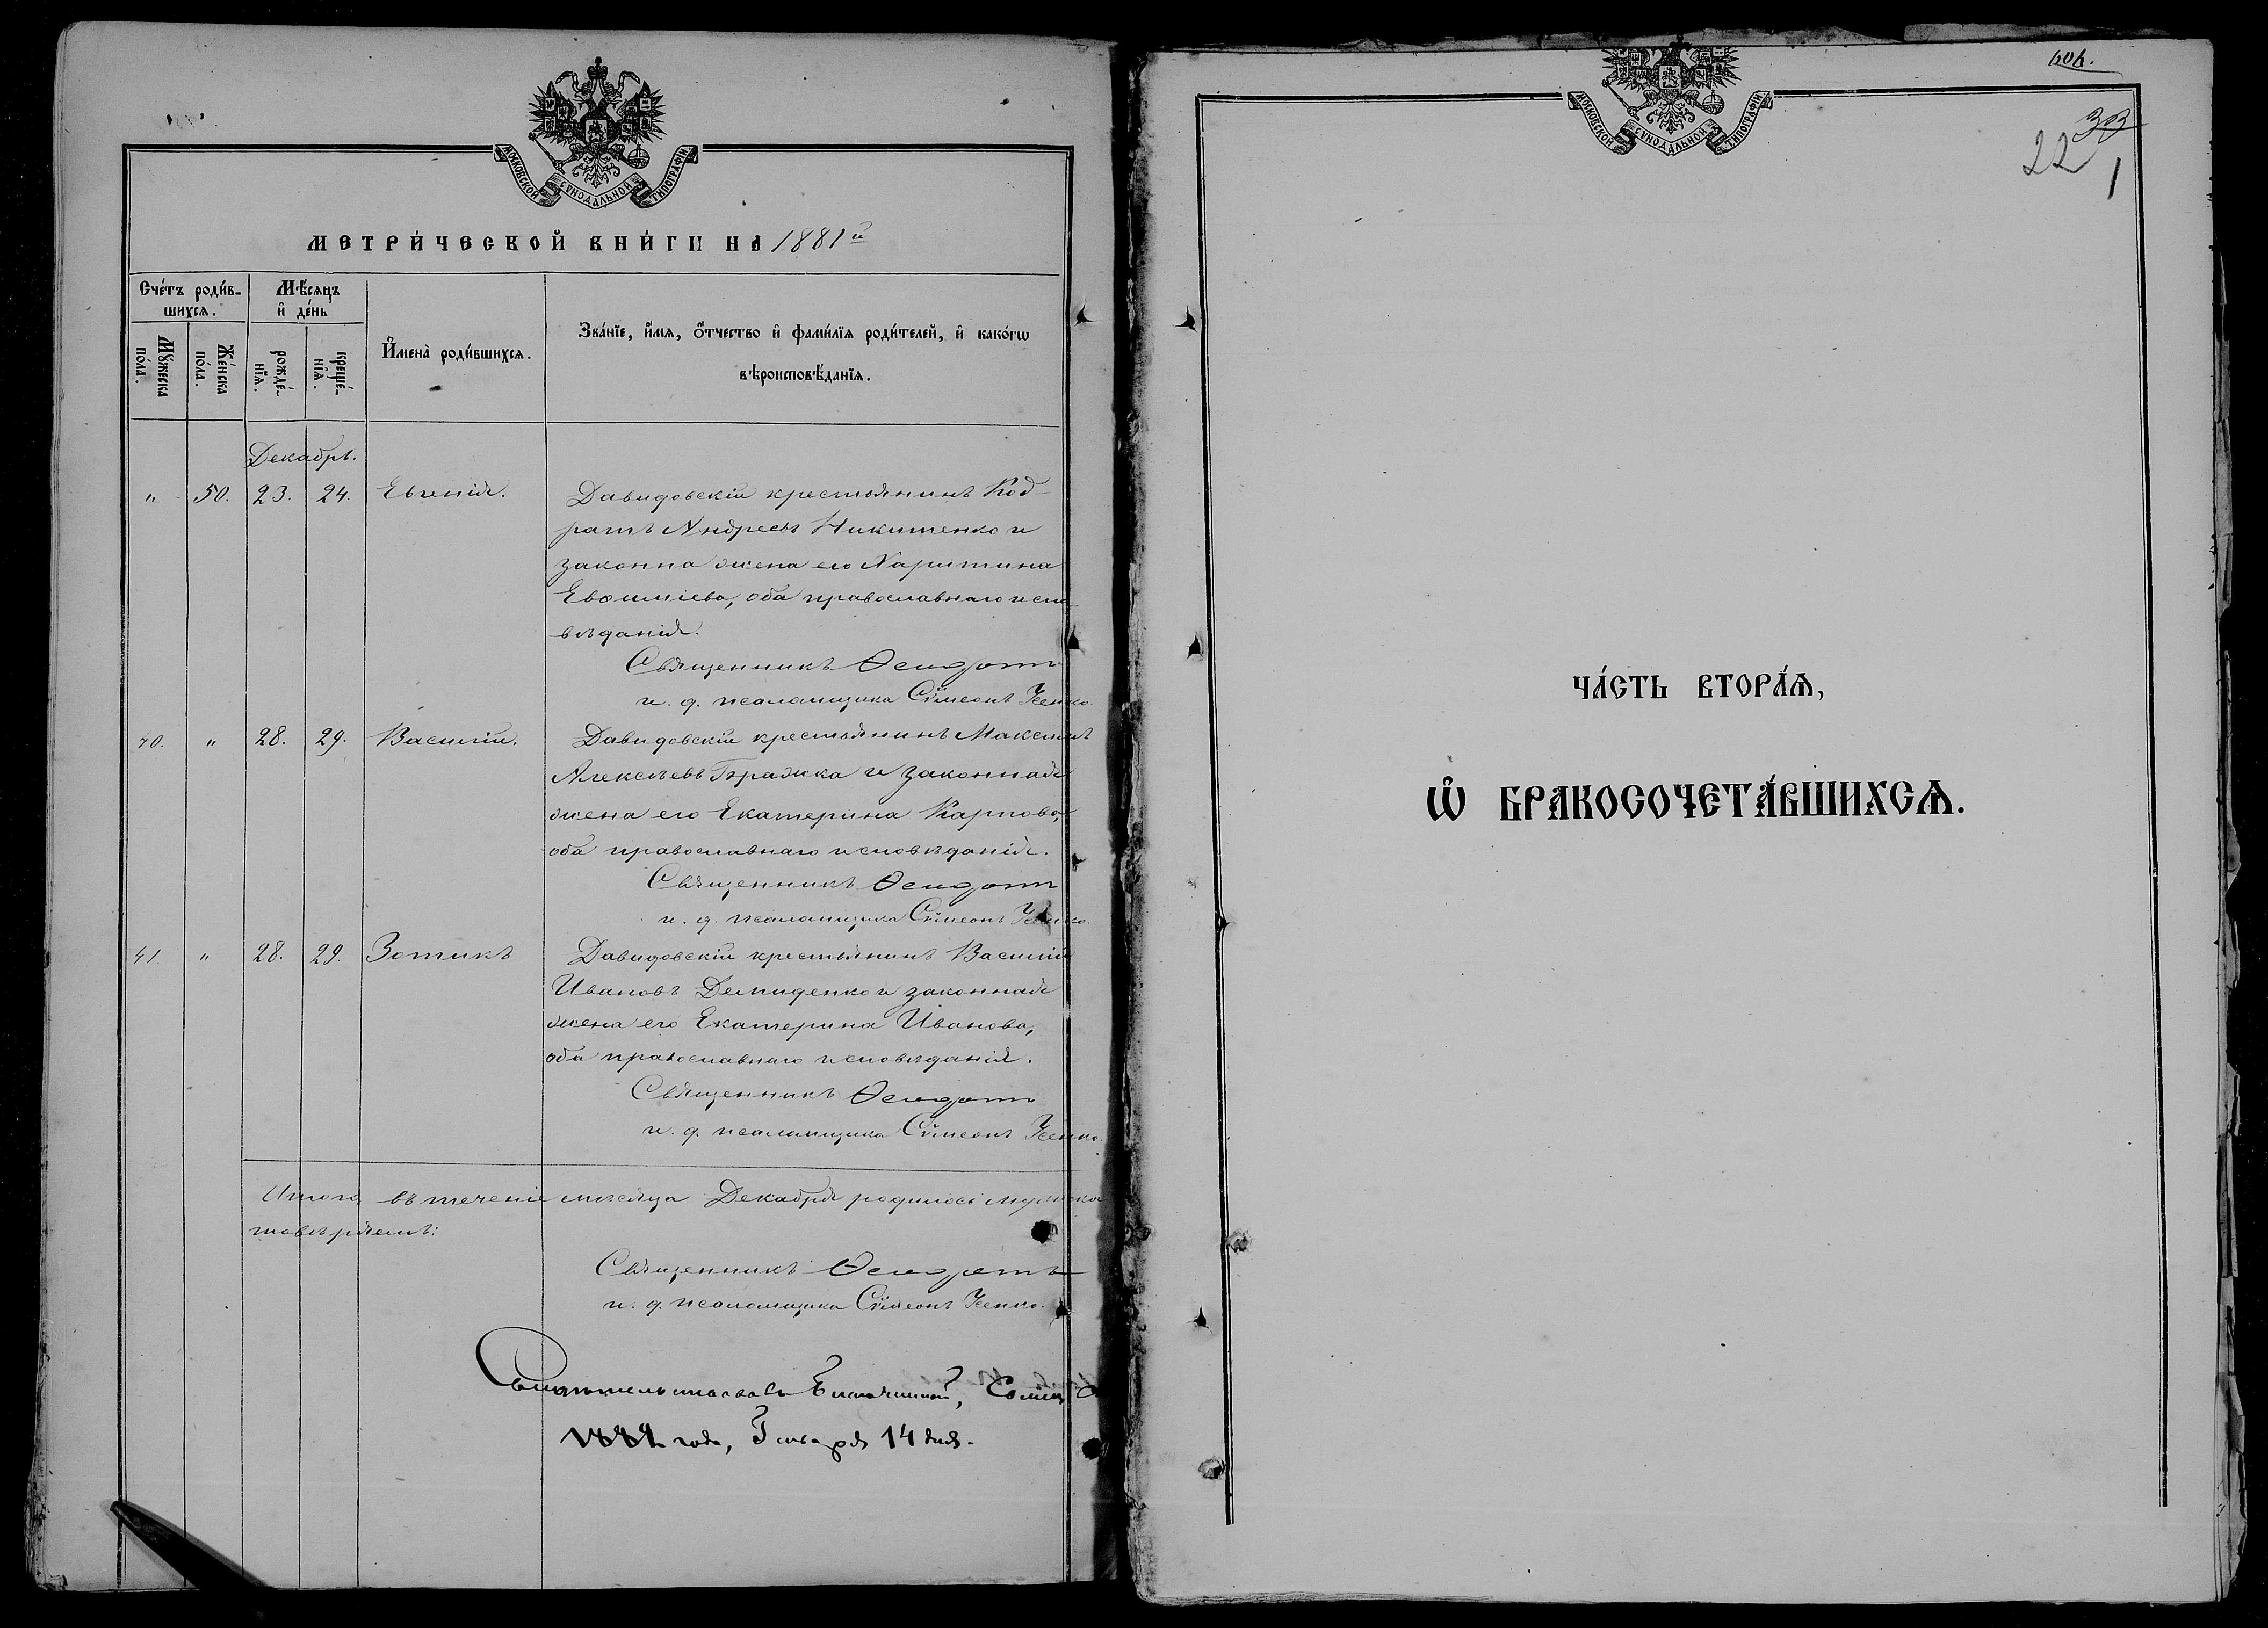 МОСКОВСКОЙ СѴНОДАЛЬНОЙ ТИПОГРАФІИ
МЕТРИ́ЧЕСКОЙ КНИ́ГИ НА 1881й
Сче́тъ роди́в-
шихсѧ.
Мѣ́сѧцъ
и҆ де́нь
Мꙋ́жеска
по́ла.
Же́нска
по́ла.
рожде́-
нїѧ.
креще́-
нїѧ.
И҆мена̀ роди́вшихсѧ.
Зва́нїе, и҆́мѧ, ѻ҆́тчество и҆ фами́лїѧ роди́телей, и҆ како́гѡ
вѣроисповѣ́данїѧ.
Декабрь.
" 50. 23. 24. Евгенія. Давидовскій крестьянинъ Код-
ратъ Андреевъ Никитенко и
законна жена его Харитина
Евѳиміева, оба православнаго испо-
вѣданія.
Священникъ Ѳеодотъ
и. д. псаломщика Сѵмеонъ
40. " 28. 29. Василій. Давидовскій крестьянинъ Максимъ
Алексѣевъ Бражка и законная
жена его Екатерина Карпова,
оба православнаго исповѣданія.
Священникъ Ѳеодотъ
и. д. псаломщика Сѵмеонъ
41. " 28. 29. Зотикъ Давидовскій крестьянинъ Василій
Ивановъ Демиденко и законная
жена его Екатерина Иванова,
оба православнаго исповѣданія.
Священникъ Ѳеодотъ
и. д. псаломщика Сѵмеонъ
Итого, въ теченіе мѣсяца Декабря родилось мужеска
Священникъ Ѳеодотъ
и. д. псаломщика Сѵмеонъ
Свидѣтельствовалъ Благочинный,
1882 года, Января 14 дня.
МОСКОВСКОЙ СѴНОДАЛЬНОЙ ТИПОГРАФІИ
33
22
1
ЧА́СТЬ ВТОРА́Ѧ,
Ѡ҆ БРАКОСОЧЕТА́ВШИХСѦ.